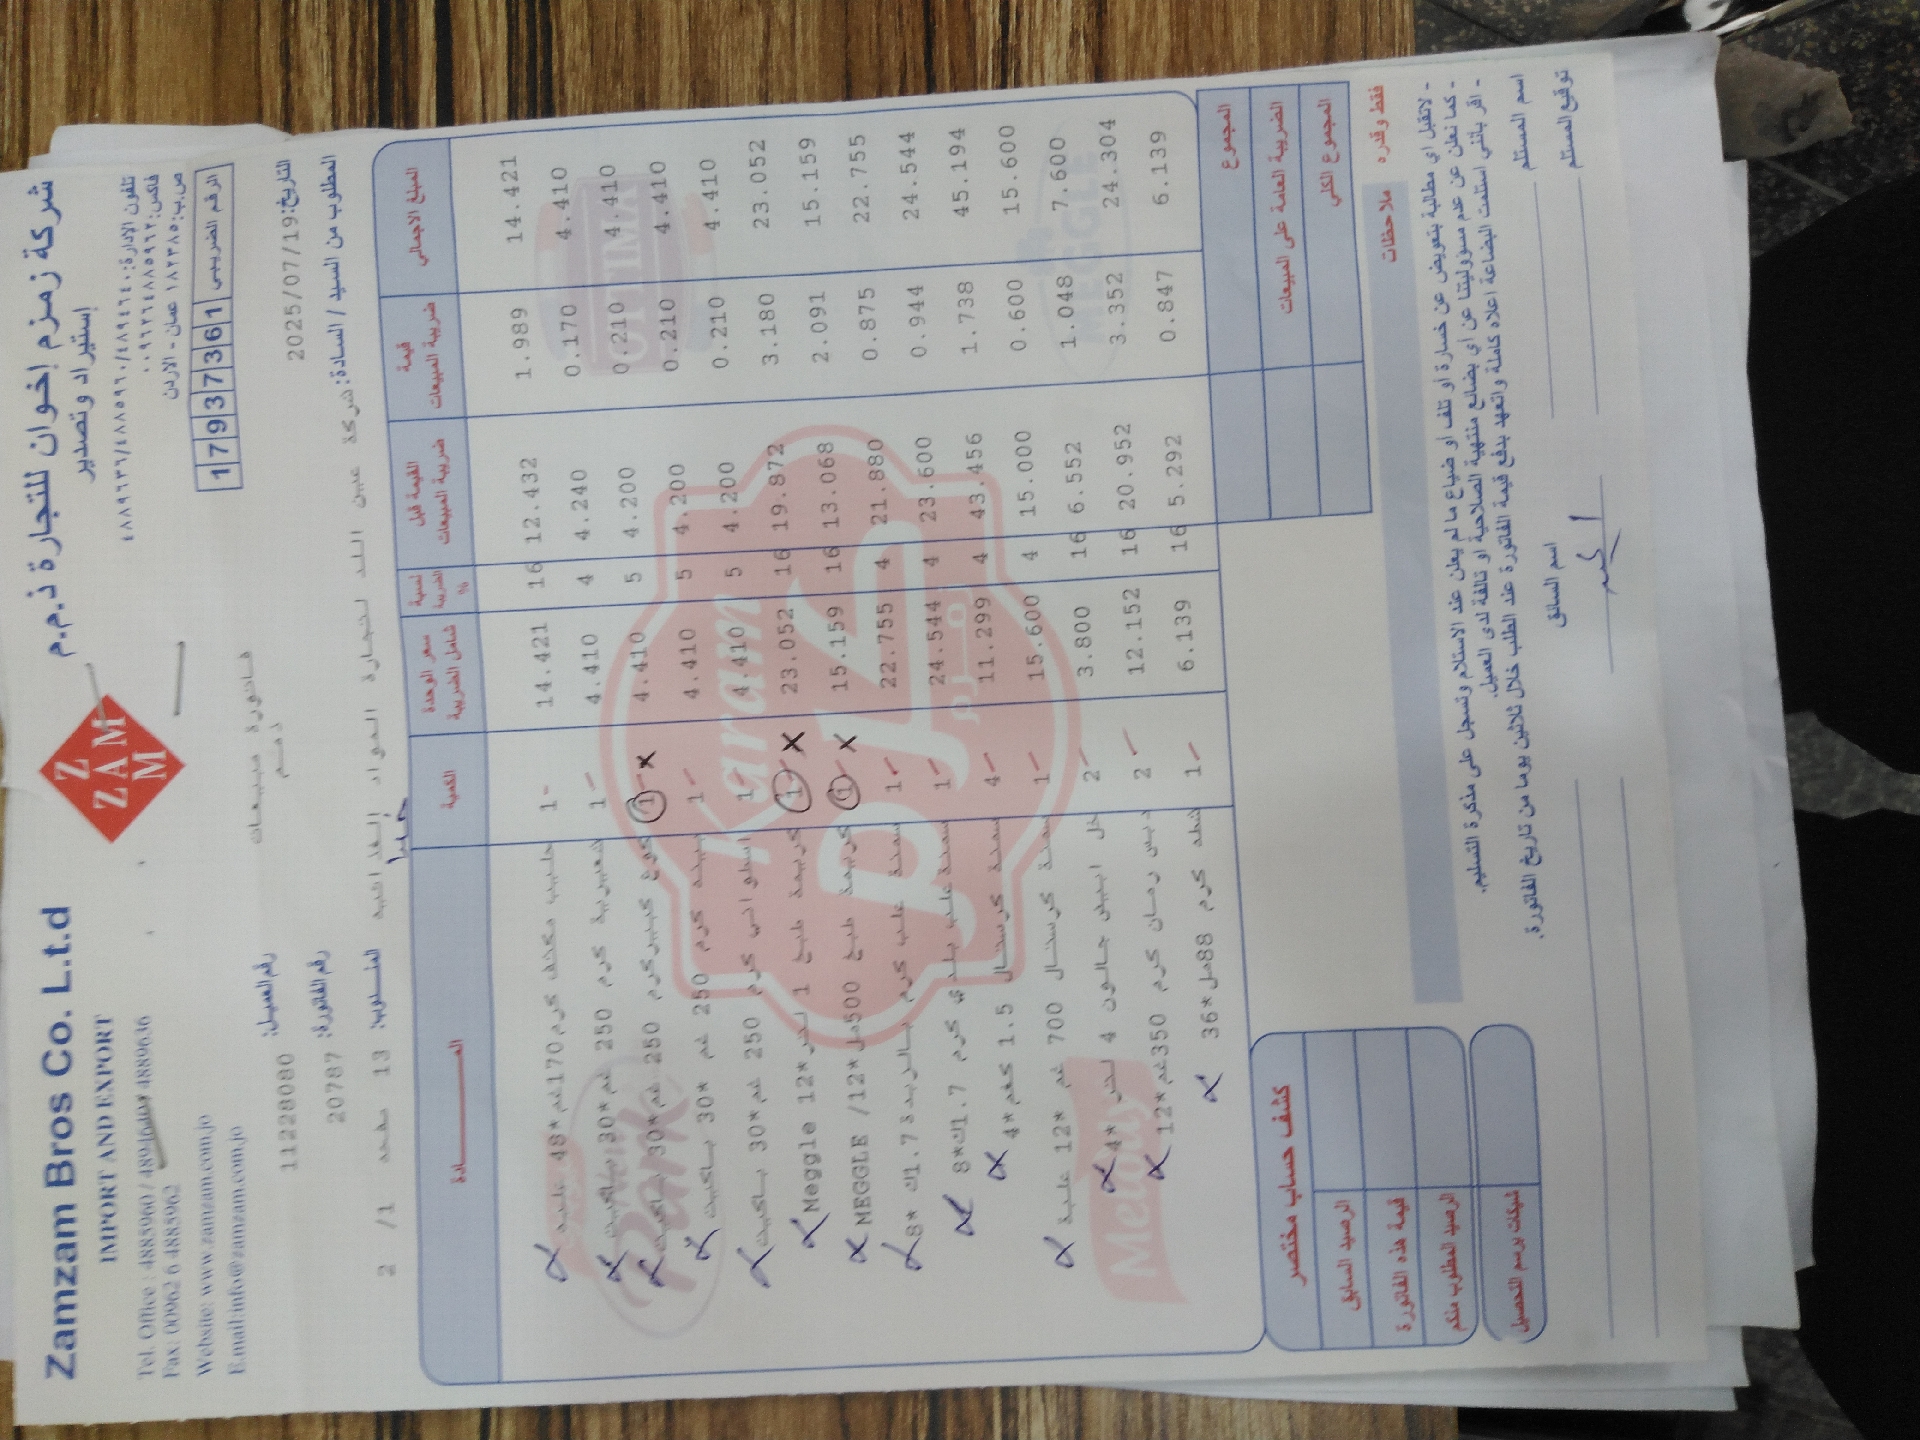 Zamzam Bros Co. L.t.d
IMPORT AND EXPORT
Fax: 00962 6 4885962
Website: www.zamzam.com.jo
E.mail:info@zamzam.com.jo
ZAM
ZAM
شركة زمزم إخوان للتجارة ذ.م.م
إستيراد وتصدير
ص.ب: ١٨٢٣٨٥ عمان - الاردن
الرقم الضريبي 17937361
فاتورة مبيعات
ذمم
رقم العميل: 11228080
رقم الفاتورة: 20787
التاريخ: 2025/07/19
المندوب: 13 صفحه 1/ 2
المطلوب من السيد / السادة: شركة عين الند لتجارة المواد الغذائية
المـــــادة الكمية سعر الوحدة شامل الضريبة نسبة الضريبة % القيمة قبل ضريبة المبيعات قيمة ضريبة المبيعات المبلغ الاجمالي
حليب مكثف كرم 170غم*48 علبه 1 14.421 16 12.432 1.989 14.421
شعيرية كرم 250 غم*30 باكيت 1 4.410 4 4.240 0.170 4.410
كوع كبير كرم 250 غم*30 باكيت 1 4.410 5 4.200 0.210 4.410
بينه كرم 250 غم *30 باكيت 1 4.410 5 4.200 0.210 4.410
اسلواني كرم 250 غم*30 باكيت 1 4.410 5 4.200 0.210 4.410
كريمة طبخ 1 لتر*12 Meggle 1 23.052 16 19.872 3.180 23.052
كريمة طبخ 500مل*12/ MEGGLE 1 15.159 16 13.068 2.091 15.159
سمنة علب كرم بالزبدة 1.7ك *8 1 22.755 4 21.880 0.875 22.755
سمنة علب بلدي كرم 1.7ك*8 1 24.544 4 23.600 0.944 24.544
سمنة كرستال 1.5 كغم*4 4 11.299 4 43.456 1.738 45.194
سمنة كرستال 700 غم *12 علبة 1 15.600 4 15.000 0.600 15.600
خل ابيض جالون 4 لتر*4 2 3.800 16 6.552 1.048 7.600
دبس رمان كرم 350غم*12 2 12.152 16 20.952 3.352 24.304
شطه كرم 88مل*36 1 6.139 16 5.292 0.847 6.139
Karam
OPTIMA
MEGGLE
Melody
المجموع
الضريبة العامة على المبيعات
المجموع الكلي
كشف حساب مختصر
الرصيد السابق
قيمة هذه الفاتورة
الرصيد المطلوب منكم
شيكات برسم التحصيل
فقط وقدره
ملاحظات
- لاتقبل اي مطالبة بتعويض عن خسارة أو تلف او ضياع ما لم يعلن عند الاستلام وتسجل على مذكرة التسليم.
- كما نعلن عن عدم مسؤوليتنا عن اي بضائع منتهية الصلاحية او تالفة لدى العميل.
- اقر بأنني استلمت البضاعة اعلاه كاملة واتعهد بدفع قيمة الفاتورة عند الطلب خلال ثلاثين يوما من تاريخ الفاتورة.
اسم السائق
اسم المستلم
توقيع المستلم